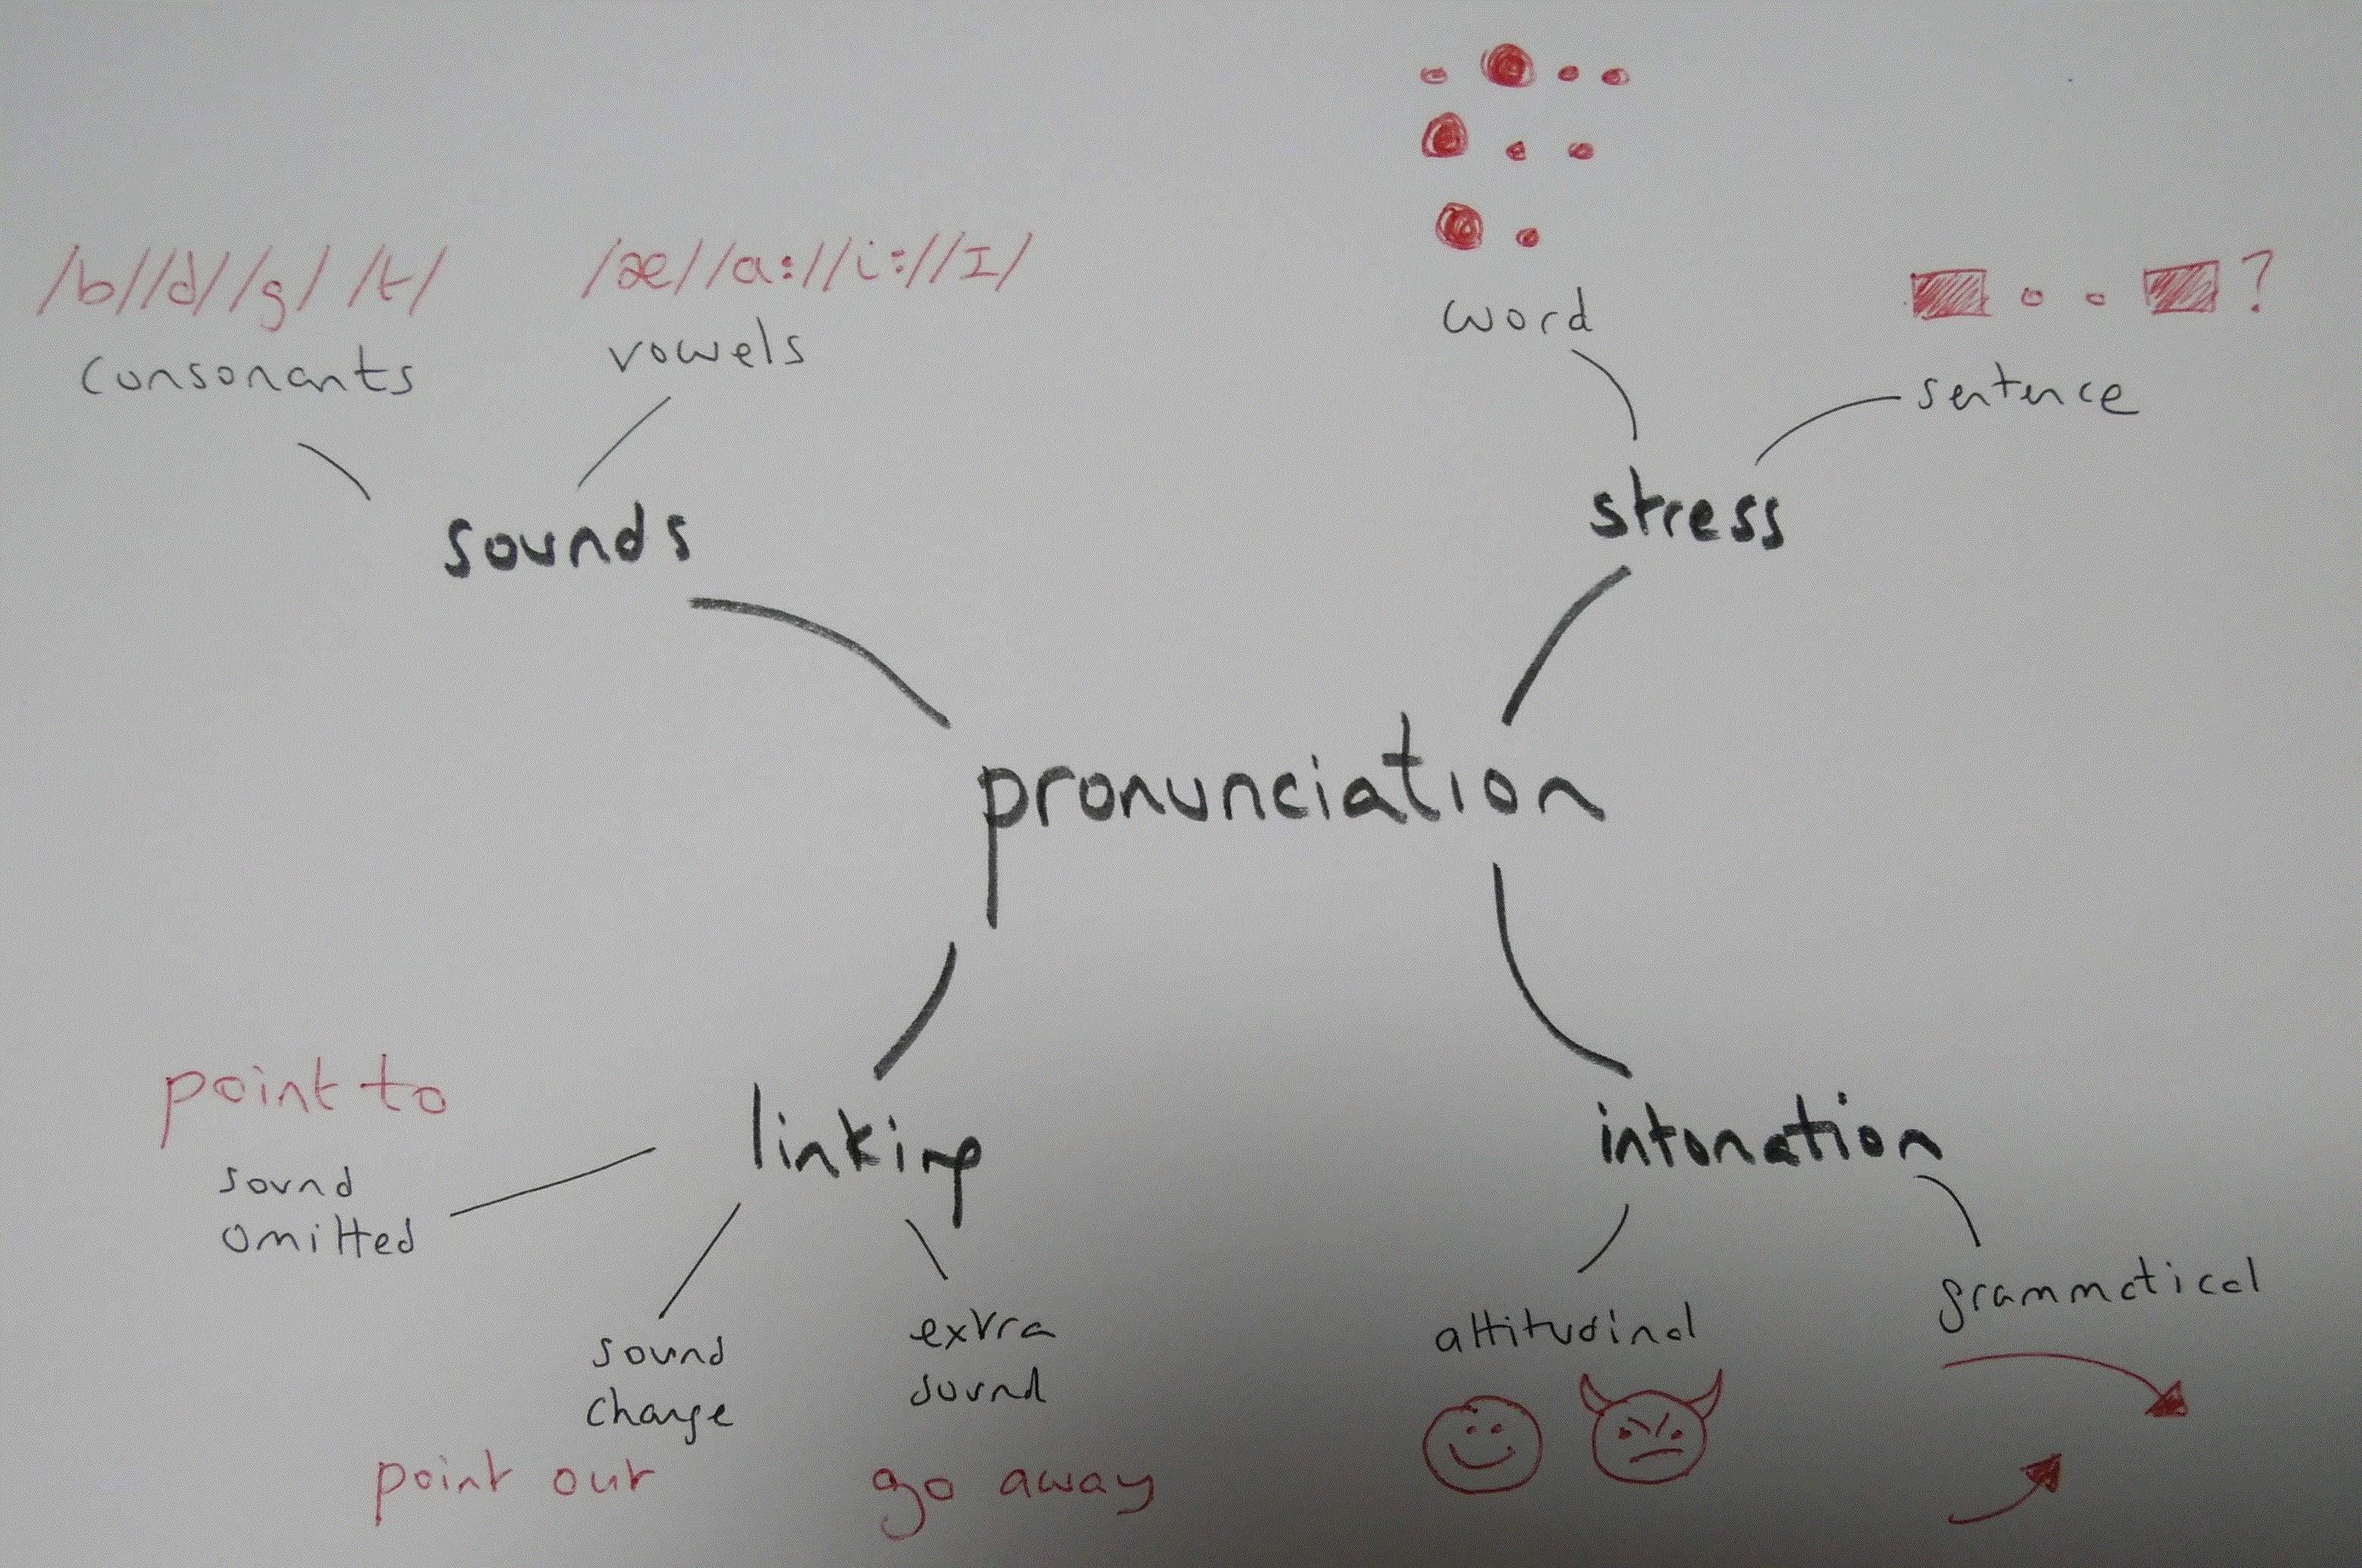 /b//d//g/ /t/
consonants
/æ//a://i://I/
vowels
sounds
word
?
sentence
stress
pronunciation
linking
point to
sound
omitted
sound
change
point out
extra
sound
go away
intonation
attitudinal
grammatical